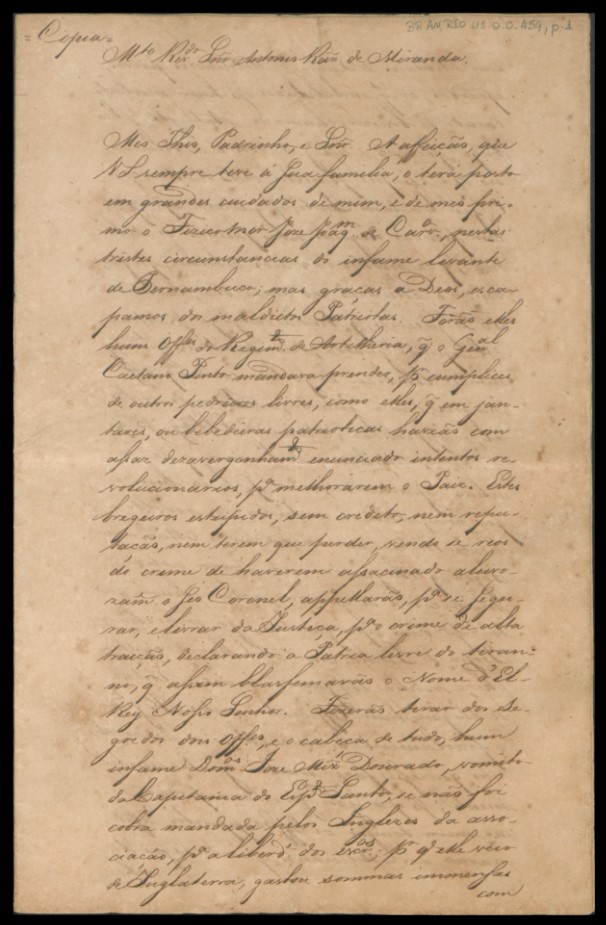 = Copia =
BR AN,RIO UI.0.0.459, p.1
M.to Rev.do Snr. Antonio Roiz de Miranda.
Meo Thio, Padrinho, e Snr. A afeição, que
VS sempre teve á sua familia, o terá posto
em grandes cuidados de mim, e de meo pri-
mo o Fizico Mor Joze de Carv.o, nestas
tristes circunstancias do infame levante
de Pernambuco; mas graças a Deos, esca-
pamos dos maldictos Patriotas. Forão elles
huns Off.es do Regim.to de Artelheria, q̃ o Gen.al
Caetano Pinto mandara prender, p.r cumplices
de outros pedreiros livres, como elles, q̃ em jan-
tares, ou bebedeiras patrioticas havião com
assaz dezavergonham.to enunciado intentos re-
volucionarios, p.a melhorarem o Paiz. Estes
bregeiros estupidos, sem credito, nem repu-
tação, nem terem que perder, vendo-se reos
do crime de haverem assacinado aleivo-
zam.e o seo Coronel, appellarão, p.a se segu-
rar, e livrar da Justiça, p.a o crime de alta
traição, declarando a Patria livre do tiran-
no, q̃ assim blasfemavão o Nome d'El-
Rey Nosso Senhor. Fizerão tirar dos se-
gredos dous Off.es, e o cabeça de tudo, hum
infame Dom.os Joze Mīz Dourado, vomito
da Capitania do Esp.o Santo, se não foi
cobra mandada pelos Inglezes da asso-
ciação, p.a a liberd.e dos escr.os; p.r q̃ elle veio
de Inglaterra, gastou sommas immensas
com